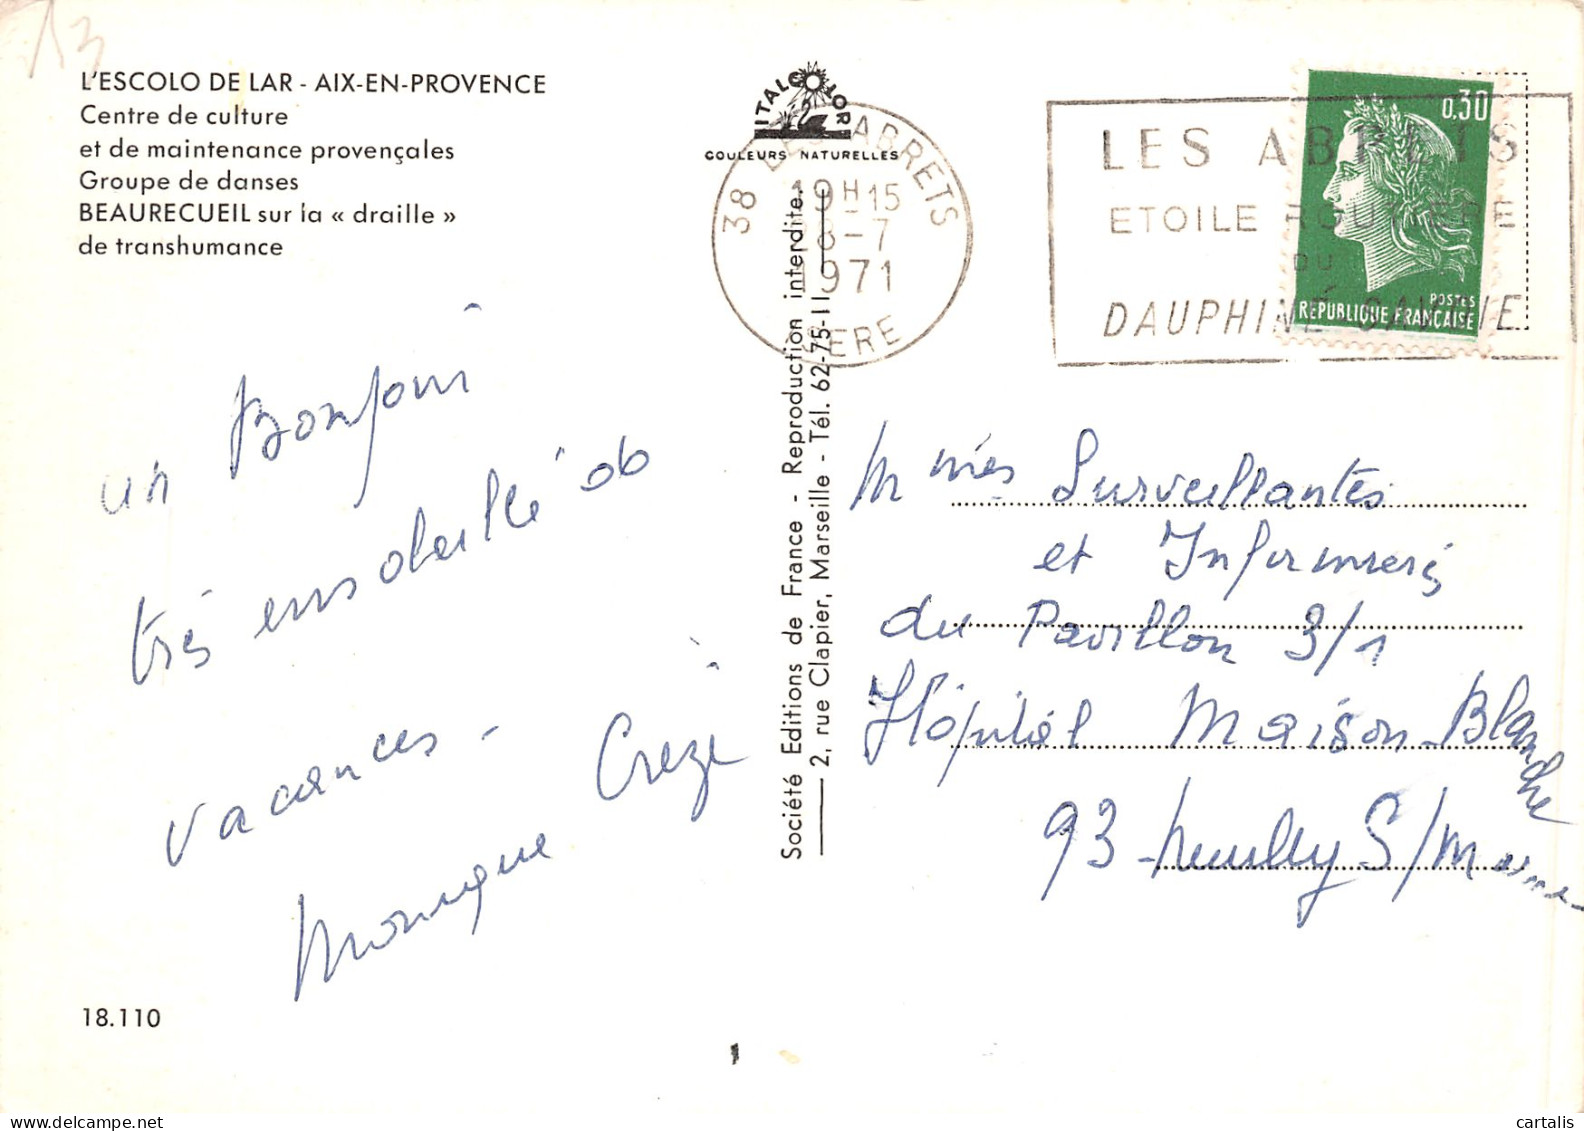 13
L'ESCOLO DE LAR - AIX-EN-PROVENCE
Centre de culture
et de maintenance provençales
Groupe de danses
BEAURECUEIL sur la « draille »
de transhumance
ITALCOLOR
COULEURS NATURELLES
38 LES ABRETS
19H15
8-7
1971
ISERE
LES ABRETS
ETOILE ROUTIERE
DU
DAUPHINÉ SAVOIE
0,30
POSTES
REPUBLIQUE FRANÇAISE
un Bonjour
très ensoleillé de
vacances -
Monique Crezé
Société Editions de France - Reproduction interdite.
2, rue Clapier, Marseille - Tél. 62-75-11
Mmes Surveillantes
et Infirmières
du Pavillon 3/1
Hôpital Maison-Blanche
93 Neuilly S/Marne
18.110
cartalis